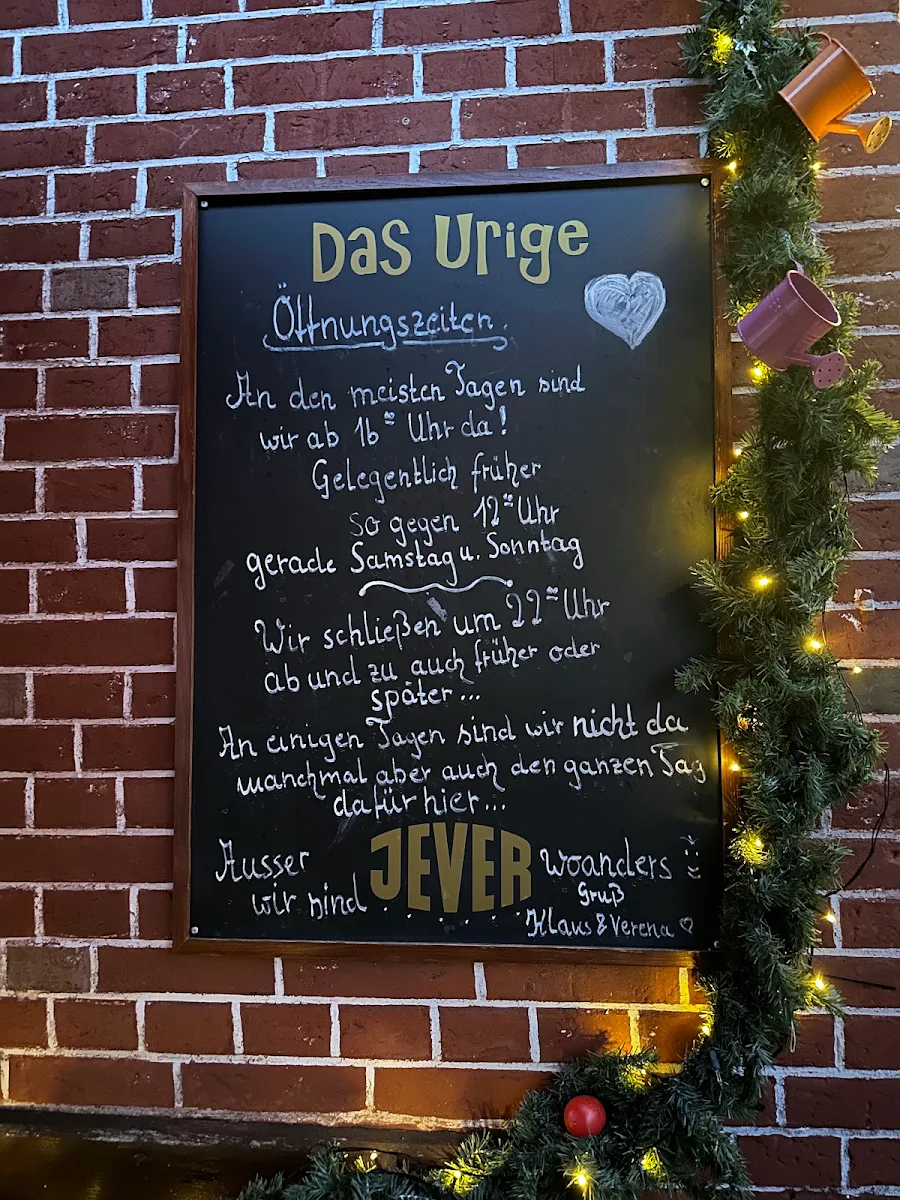 Das Urige
Öffnungszeiten.
An den meisten Tagen sind
wir ab 16°° Uhr da!
Gelegentlich früher
so gegen 12°° Uhr
gerade Samstag u. Sonntag
Wir schließen um 22°° Uhr
ab und zu auch früher oder
später...
An einigen Tagen sind wir nicht da
manchmal aber auch den ganzen Tag
dafür hier...
Ausser
wir sind
JEVER
woanders
Gruß
Klaus & Verena ♡